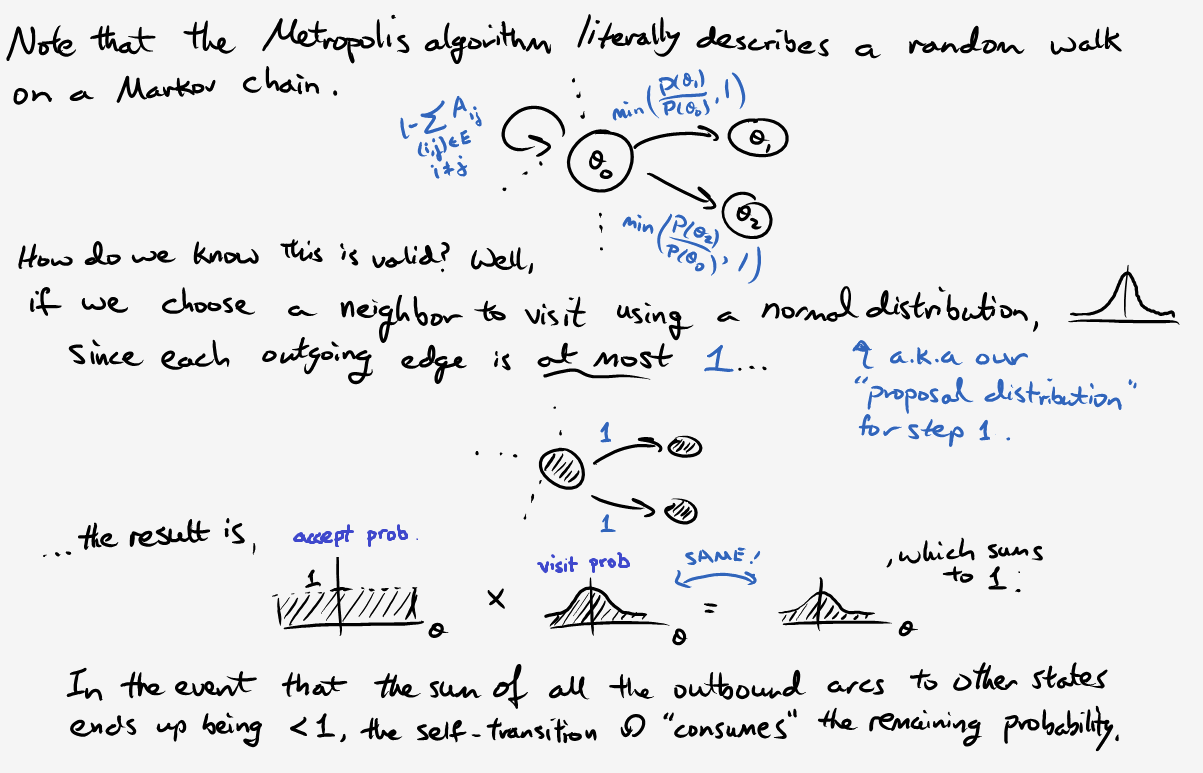 Note that the Metropolis algorithm literally describes a random walk
on a Markov chain.
1-∑ A_ij
(i,j)∈E
i≠j
θ₀
min(P(θ₁)/P(θ₀), 1)
θ₁
θ₂
min(P(θ₂)/P(θ₀), 1)
How do we know this is valid? Well,
if we choose a neighbor to visit using a normal distribution,
since each outgoing edge is at most 1...
↑ a.k.a our
"proposal distribution"
for step 1.
1
1
...the result is,
accept prob.
1
θ
×
visit prob
θ
SAME!
=
θ
, which sums
to 1.
In the event that the sum of all the outbound arcs to other states
ends up being <1, the self-transition ↺ "consumes" the remaining probability.